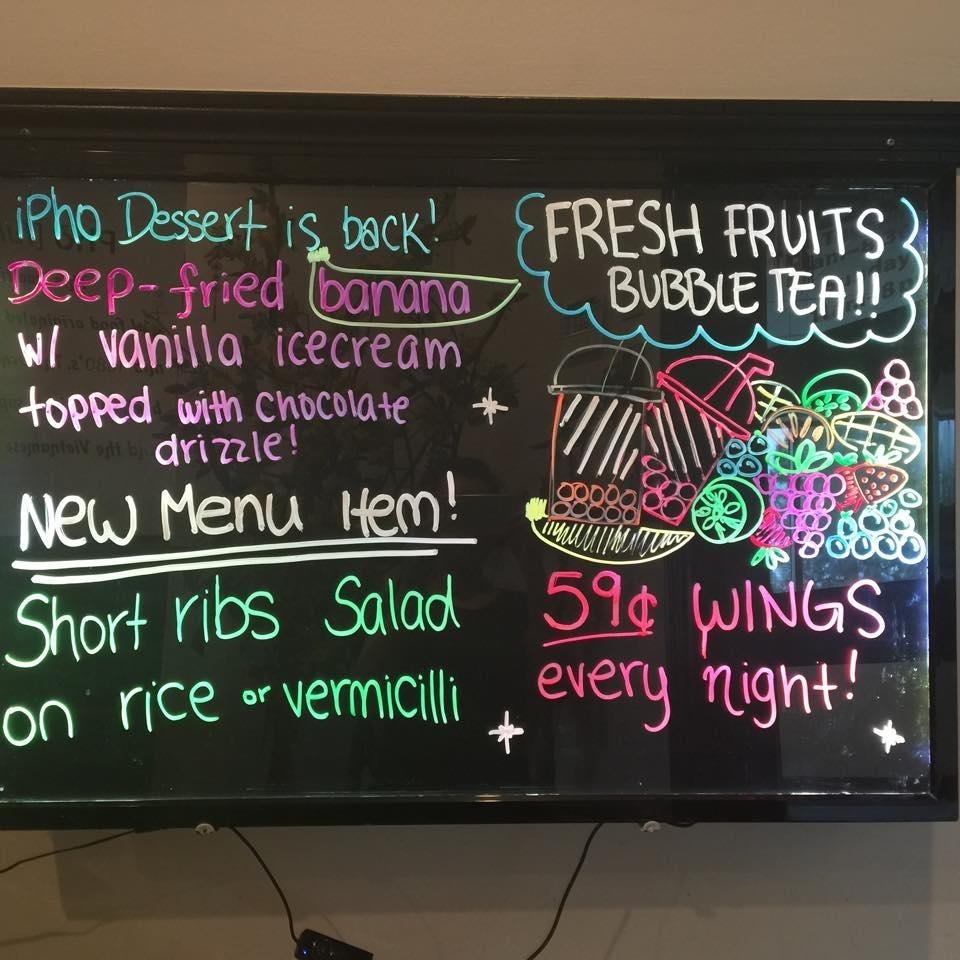 iPho Dessert is back!
Deep-fried banana
w/ vanilla icecream
topped with chocolate
drizzle!
New Menu Item!
Short ribs Salad
on rice or vermicilli
FRESH FRUITS
BUBBLE TEA!!
59¢ WINGS
every night!